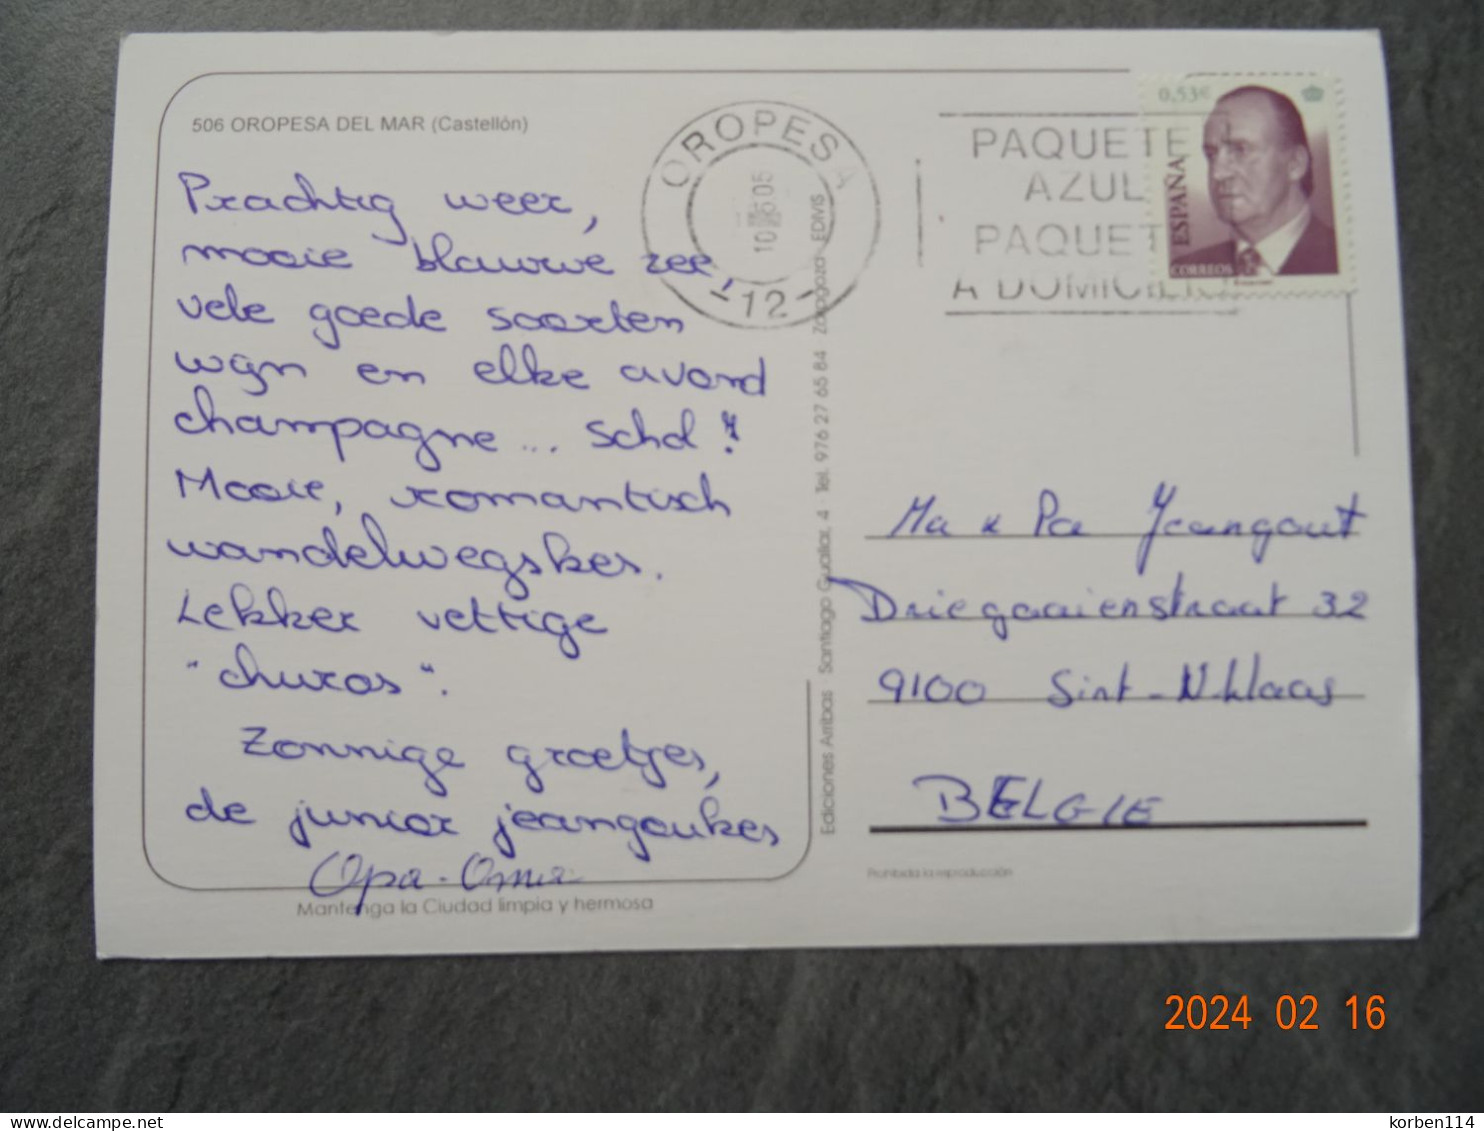 506 OROPESA DEL MAR (Castellón)
Prachtig weer,
mooie blauwe zee,
vele goede soorten
wijn en elke avond
champagne... schol!
Mooie, romantisch
wandelwegskes.
Lekker vettige
"churos".
Zonnige groetjes,
de junior jeangoukes
Opa - Oma
Mantenga la Ciudad limpia y hermosa
OROPESA
10 05
-12-
PAQUETE
AZUL
PAQUET
A DOMICILIO
0,53€
ESPAÑA
CORREOS
Ediciones Arribas Santiago Guallar, 4 Tel. 976 27 65 84 Zaragoza EDIVIS
Ma & Pa Jeangout
Driegaaienstraat 32
9100 Sint-Niklaas
BELGIE
Prohibida la reproducción
2024 02 16
delcampe.net
korben114